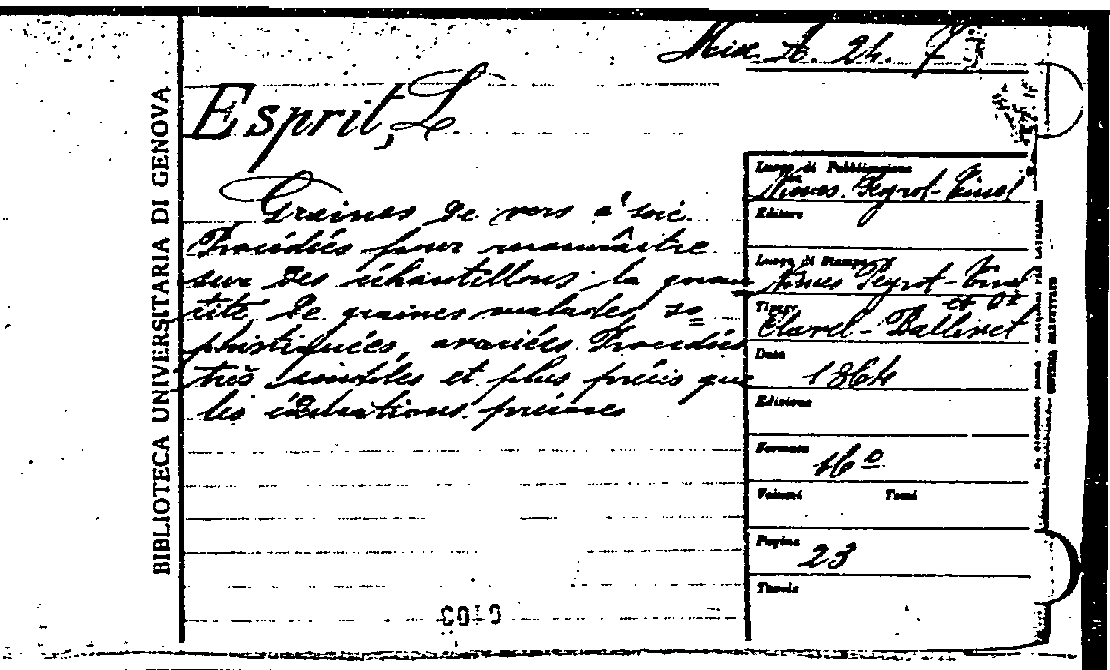 Misc. A. 24. 7
BIBLIOTECA UNIVERSITARIA DI GENOVA
Esprit, L.
Graines de vers à soie.
Procédés pour reconnaître
sur des échantillons la quan
tité de graines malades, so
phistiquées, avariées. Procédés
très simples et plus précis que
les éducations précoces
Luogo di Pubblicazione
Nimes. Peyrot-Tinel
Editore
Luogo di Stampa
Nimes Peyrot-Tinel
Tipogr.
et Cie
Clavel-Ballivet
Data
1864
Edizione
Formato
16º
Volumi Tomi
Pagine
23
Tavole